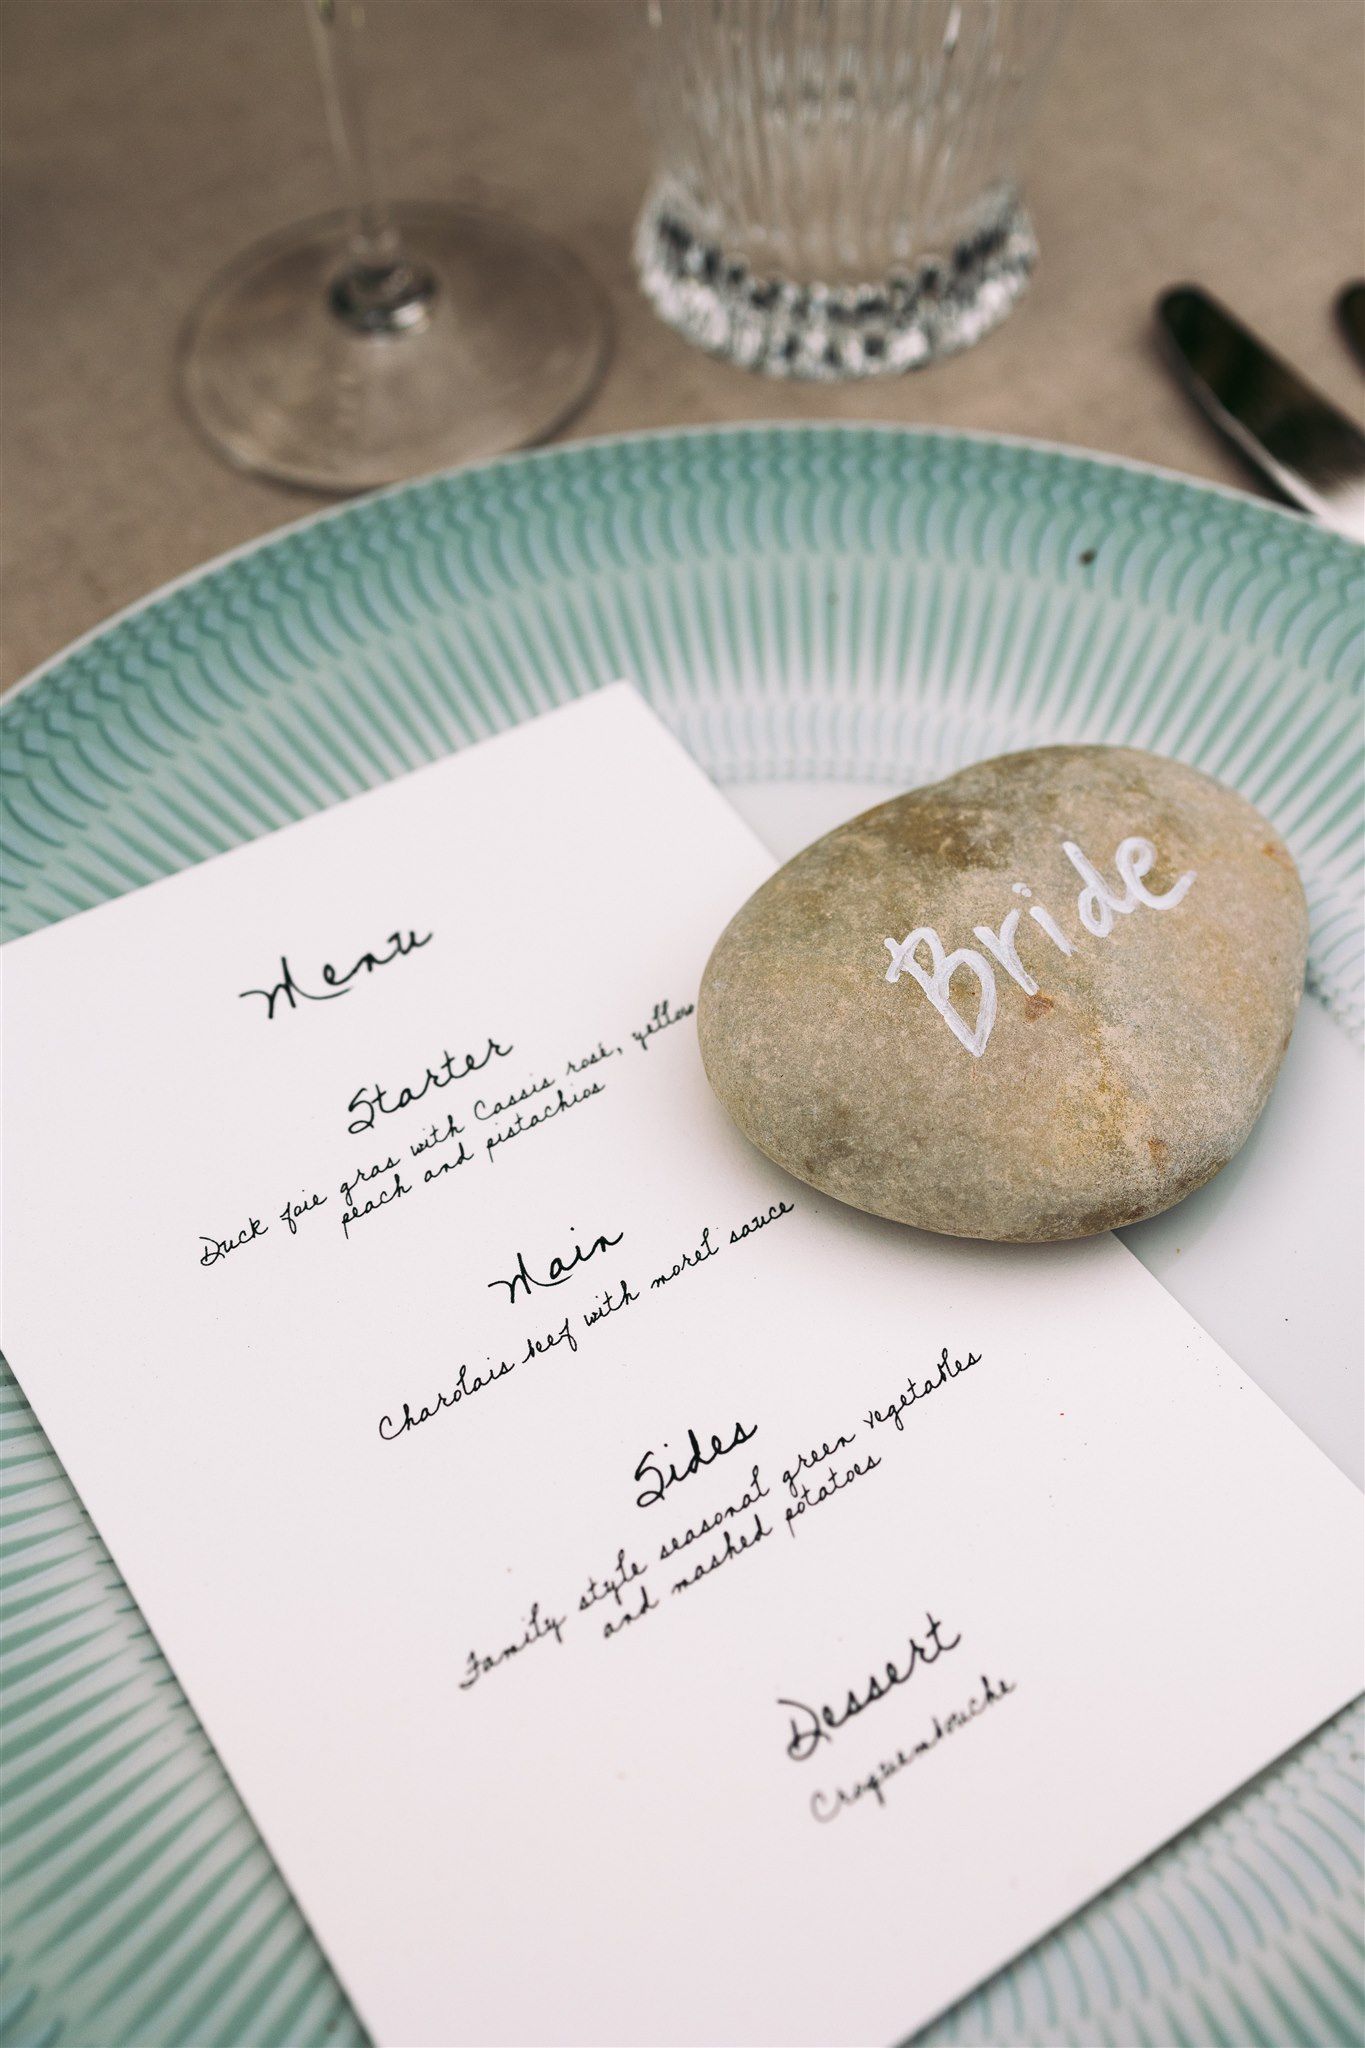 Menu
Starter
Duck foie gras with Cassis rosé, yellow
peach and pistachios
Main
Charolais beef with morel sauce
Sides
Family style seasonal green vegetables
and mashed potatoes
Dessert
Croquembouche
Bride